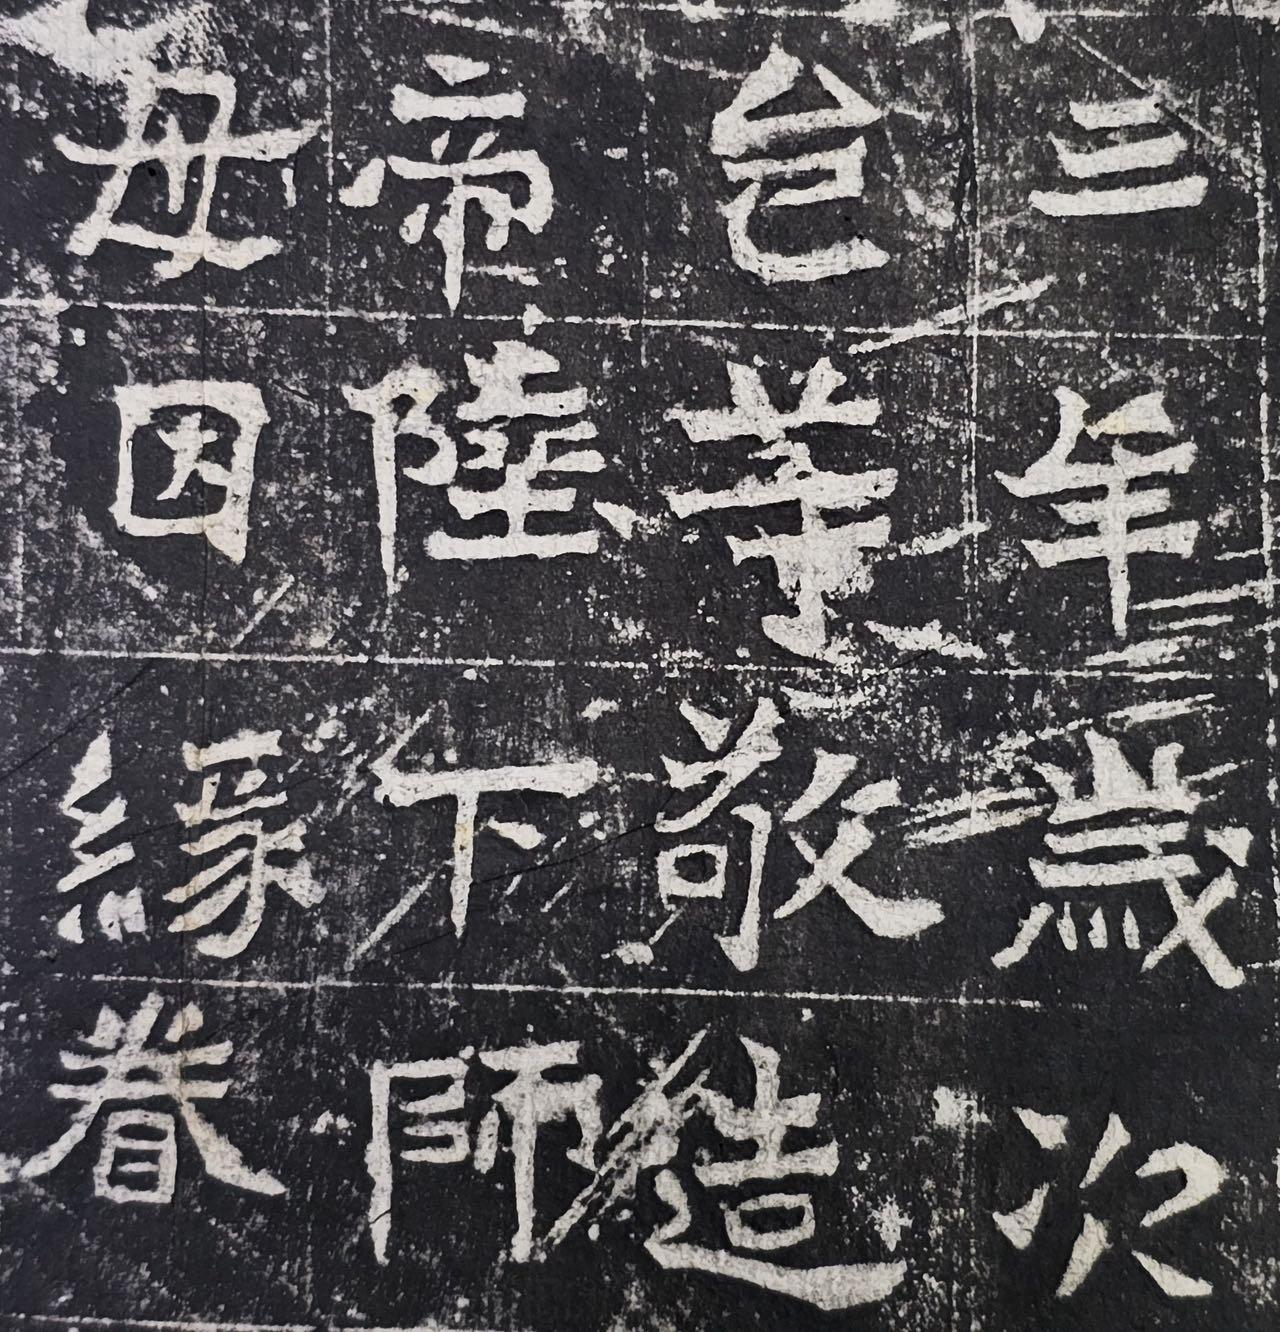 三年歲次
邑等敬造
帝陛下師
母因緣眷